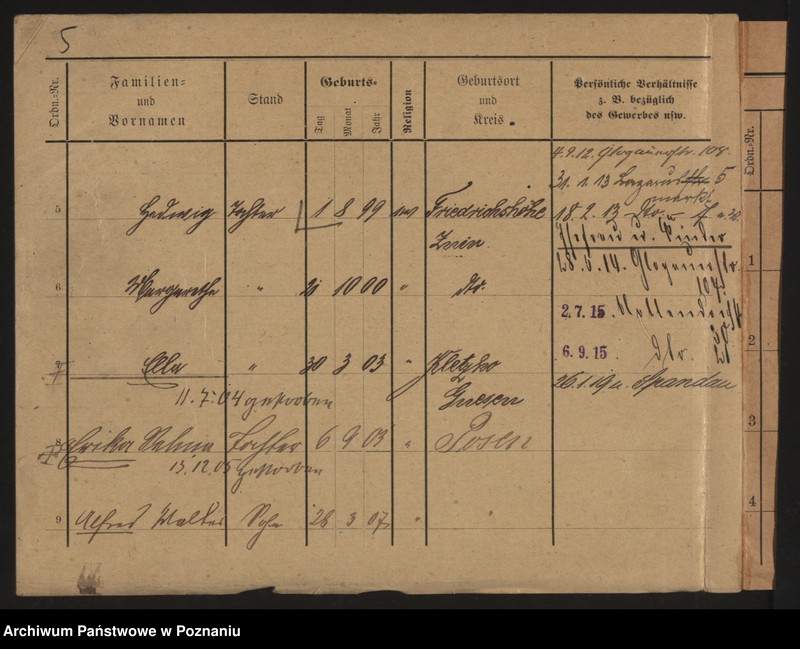 5
Ordn.-Nr.
Familien-
und
Vornamen
Stand
Geburts-
Tag
Monat
Jahr
Religion
Geburtsort
und
Kreis.
Persönliche Verhältnisse
z. B. bezüglich
des Gewerbes usw.
Ordn.-Nr.
4.9.12. Glogauerstr. 108
31. 1. 13 Lazarus 5
markt
5 Hedwig Tochter 1 8 99 ev Friedrichshöhe
18. 2. 13 dto.
Znin.
Ehefrau u. Kinder
28. 6. 14. Glogauerstr.
104
1
6 Margarethe " 2 10 00 " dto.
2. 7. 15.
2
6. 9. 15. dto.
7 Ella " 30 3 03 " Kletzko
26.1.19 n. Spandau
11. 7. 04 gestorben
Gnesen
3
8 Erika Selma Tochter 6 9 03 " Posen
13. 12. 05 gestorben
4
9 Alfred Walter Sohn 28 3 07 " "
Archiwum Państwowe w Poznaniu